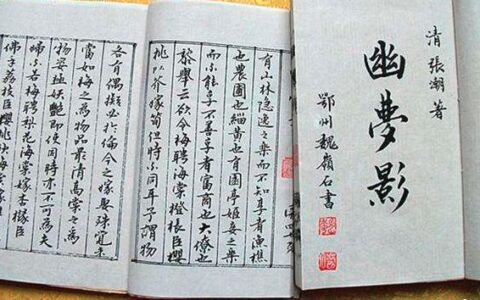 清 張潮著
幽夢影
鄂州魏嶺石書
有山林隱逸之樂而不知享者漁樵
也農圃也緇黃也有園亭姬妾之樂
而不能享不善享者富商也大僚也
黎舉云欲令梅聘海棠橙櫞臣櫻
桃以芥嫁筍但時不同耳予謂物
各有偶擬必於倫今之嫁娶殊覺未
當如梅之為物品最清高棠之為
物姿極妖艷即使同時亦不可為夫
婦不若梅聘梨花海棠嫁杏櫞臣
佛手荔枝臣櫻桃秋海棠嫁